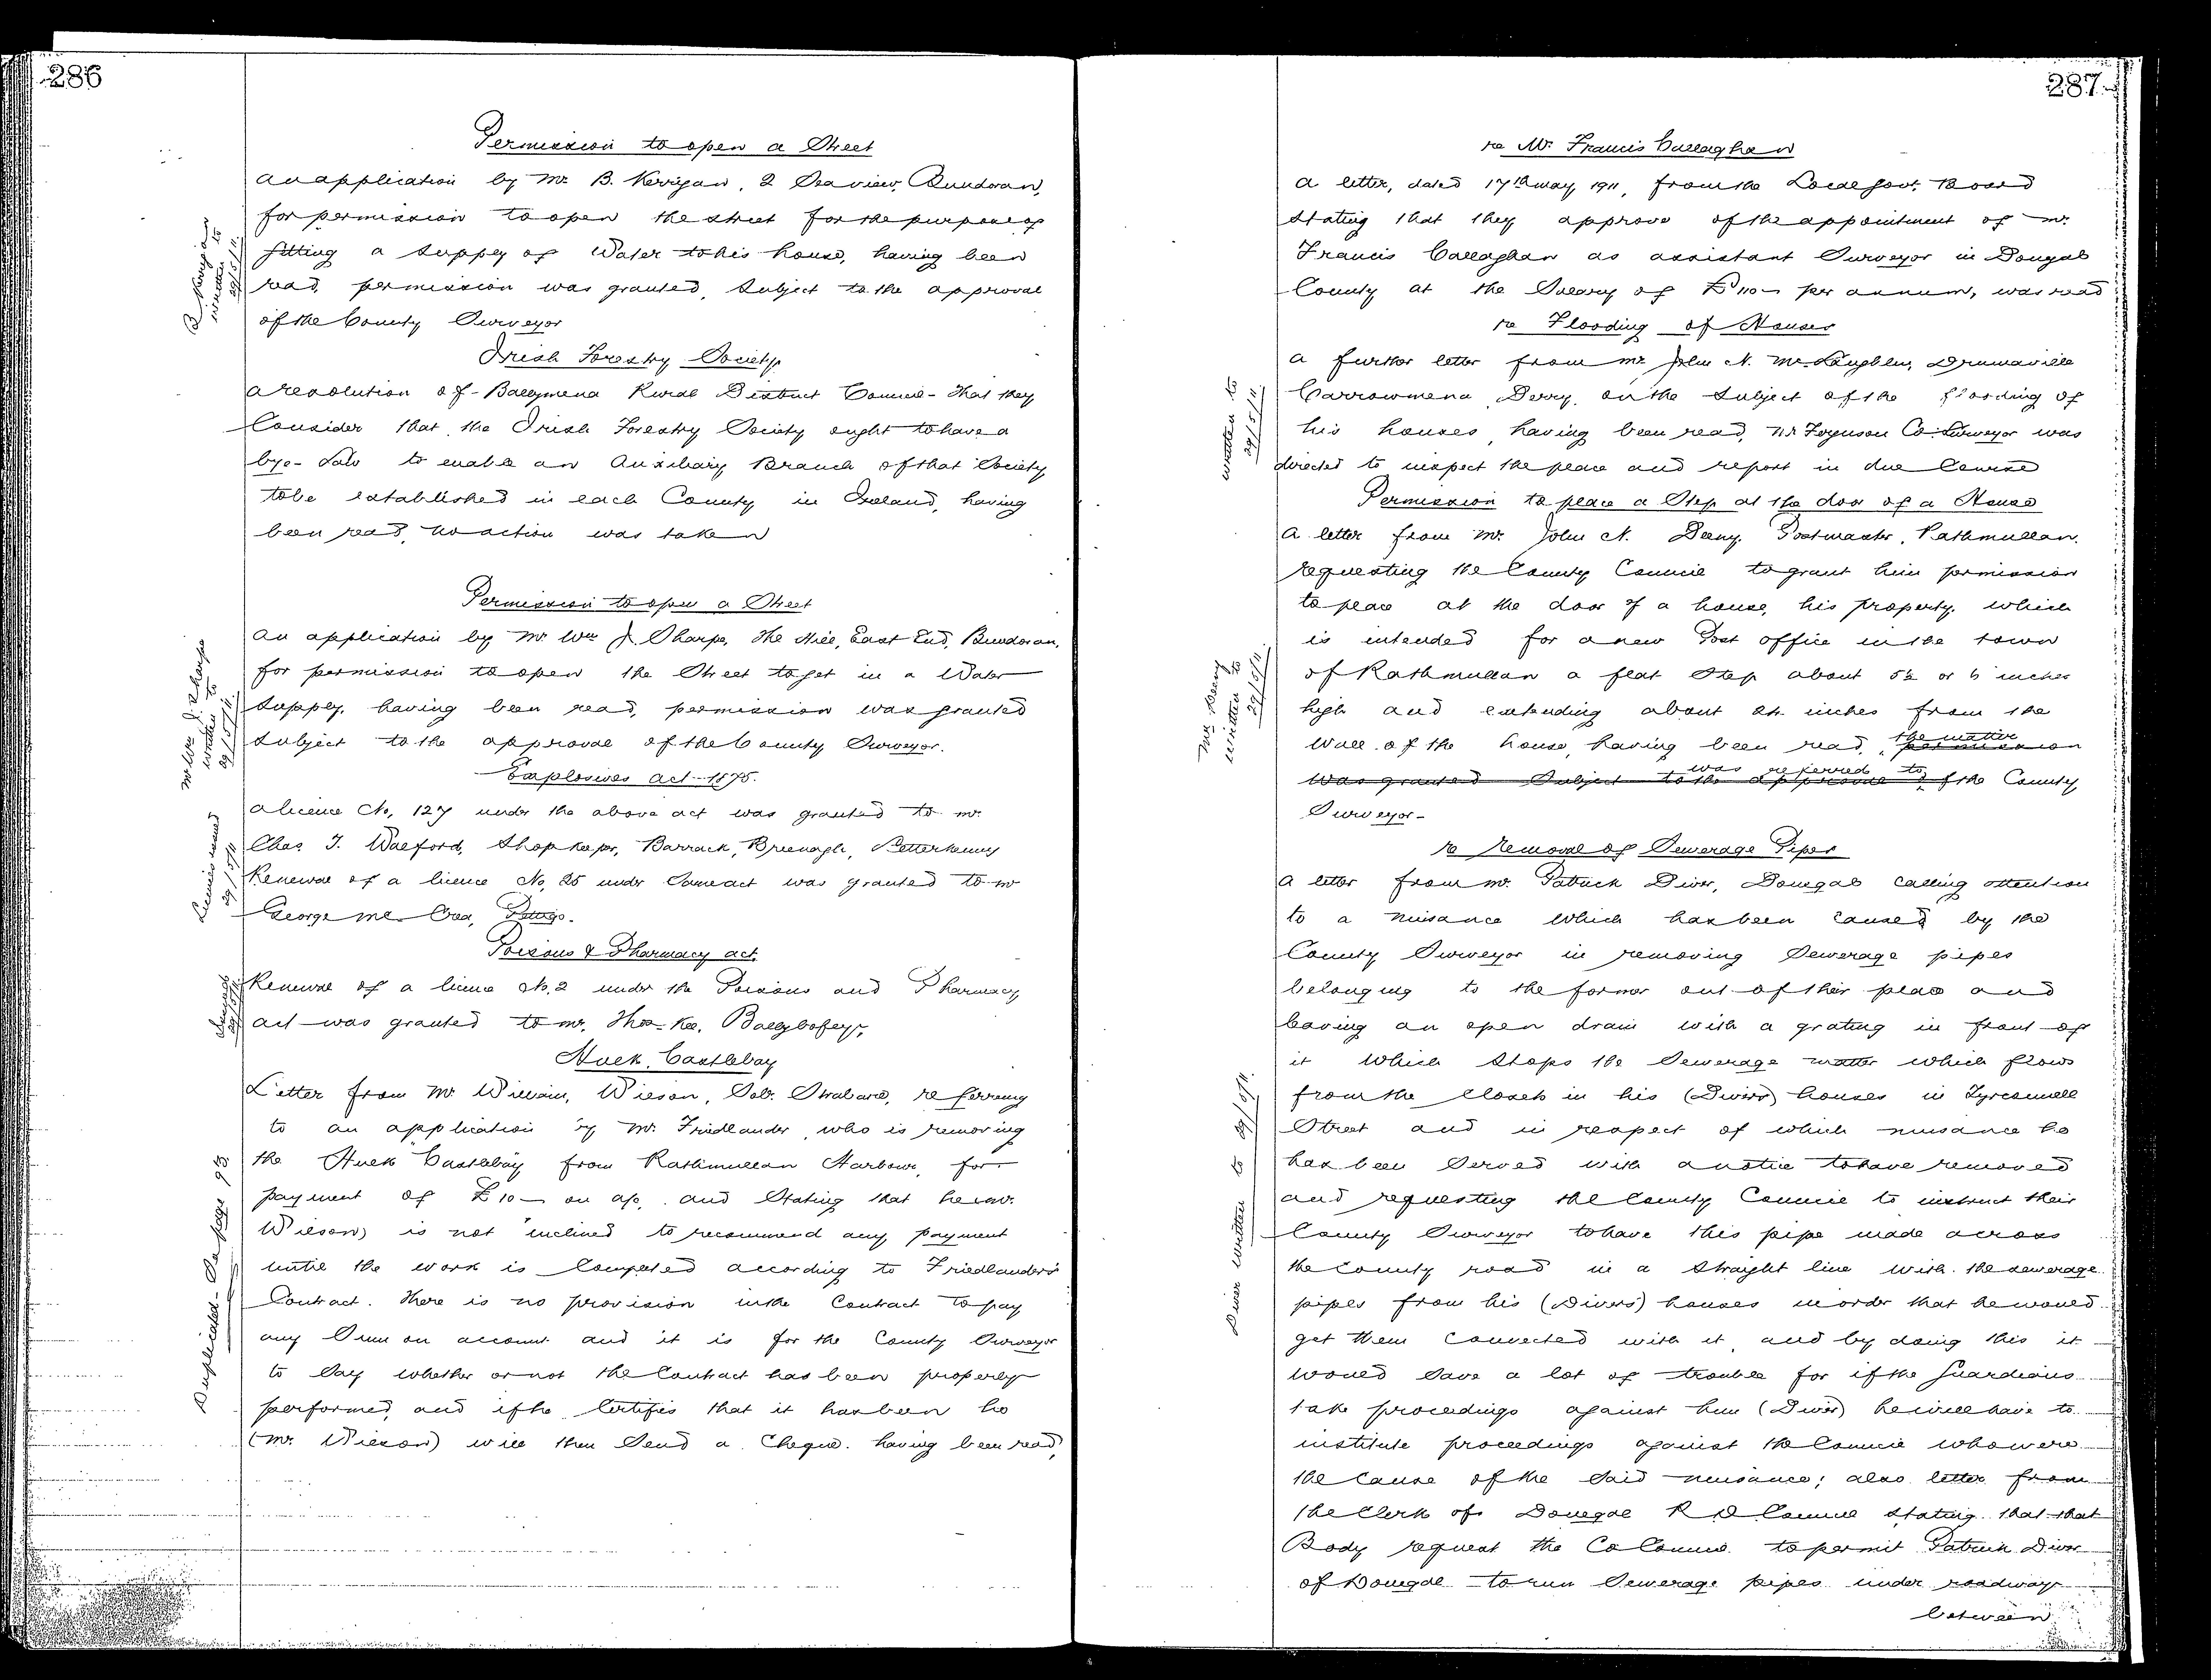 286
Permission to open a Street
An application by Mr B. Kerrigan, 2 Seaview, Bundoran,
for permission to open the street for the purpose of
fitting a supply of Water to his house, having been
read, permission was granted, subject to the approval
of the County Surveyor
B. Kerrigan
written to
29/5/11
Irish Forestry Society
A resolution of Ballymena Rural District Council - That they
Consider that the Irish Forestry Society ought to have a
bye-Law to enable an Auxiliary Branch of that Society
to be established in each County in Ireland, having
been read, no action was taken
Permission to open a Street
An application by Mr Wm J. Sharpe, The Hill, East End, Bundoran,
for permission to open the Street to get in a Water
Supply, having been read, permission was granted
subject to the approval of the County Surveyor.
Mr Wm J. Sharpe
written to
29/5/11
Explosives Act - 1875.
A licence No, 127 under the above act was granted to Mr
Chas J. Walford, Shopkeeper, Barrack, Breenagh, Letterkenny
Renewal of a licence No, 25 under Same act was granted to Mr
George Mc Crea, Pettigo.
Licences issued
29/5/11
Poisons & Pharmacy act.
Renewal of a licence No. 2 under the Poisons and Pharmacy
act was granted to Mr. Thos. Kee, Ballybofey,
29/5/11
Hulk, Castlebay
Letter from Mr William, Wilson, Solr. Strabane, referring
to an application by Mr. Friedlander, who is removing
the Hulk Castlebay from Rathmullan Harbour, for
payment of £10- on a/c, and Stating that he (Mr.
Wilson) is not inclined to recommend any payment
until the work is Completed according to Friedlander's
Contract. There is no provision in the Contract to pay
any Sum on account and it is for the County Surveyor
to Say whether or not the Contract has been properly
performed, and if he Certifies that it has been he
(Mr. Wilson) will then Send a Cheque. having been read,
Duplicated - See page 95
287
re Mr. Francis Callaghan
A letter, dated 17th May, 1911, from the Local Govt. Board
Stating that they approve of the appointment of Mr.
Francis Callaghan as assistant Surveyor in Donegal
County at the Salary of £110- per annum, was read
re Flooding of Houses
A further letter from Mr John N. McLaughlin, Drumaville
Carrowmena, Derry, on the Subject of the flooding of
his houses, having been read, Mr Ferguson Co. Surveyor was
directed to inspect the place and report in due Course
written to
29/5/11
Permission to place a Step at the door of a House
A letter from Mr. John N. Deeny, Postmaster, Rathmullan.
requesting the County Council to grant him permission
to place at the door of a house, his property, which
is intended for a new Post office in the town
of Rathmullan a flat Step about 5½ or 6 inches
high and extending about 24 inches from the
Wall of the house, having been read, permission the matter
was granted Subject to the approval of was referred to the County
Surveyor-
Mr Deeny
written to
29/5/11
re Removal of Sewerage Pipes
A letter from Mr. Patrick Diver, Donegal calling attention
to a nuisance which has been caused by the
County Surveyor in removing Sewerage pipes
belonging to the former out of their place and
leaving an open drain with a grating in front of
it which Stops the Sewerage matter which flows
from the closets in his (Divers) houses in Tyrconnell
Street and in respect of which nuisance he
has been Served with a notice to have removed
and requesting the County Council to instruct their
County Surveyor to have this pipe made across
the County road in a Straight line with the sewerage
pipes from his (Divers) houses in order that he would
get them Connected with it, and by doing this it
would Save a lot of trouble for if the Guardians
take proceedings against him (Diver) he will have to
institute proceedings against the Council who were
the Cause of the Said nuisance; also letter from
the Clerk of Donegal R D Council stating that that
Body request the Co Council to permit Patrick Diver
of Donegal to run Sewerage pipes under roadway
between
Diver written to 29/5/11.